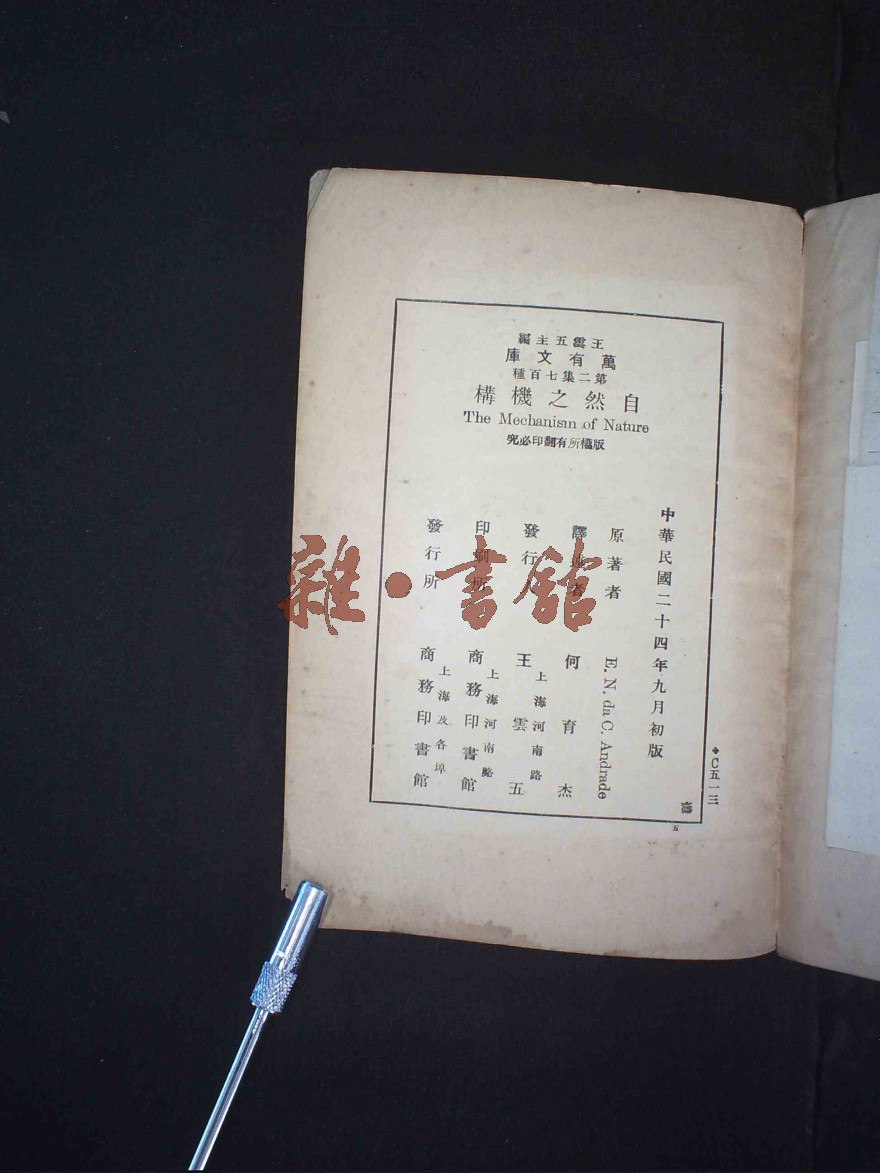 王雲五主編
萬有文庫
第二集七百種
自然之機構
The Mechanism of Nature
版權所有翻印必究
中華民國二十四年九月初版
原著者 E. N. da C. Andrade
譯述者 何育杰
發行人 上海河南路 王雲五
印刷所 上海河南路 商務印書館
發行所 上海及各埠 商務印書館
C五一三
五
雜·書館